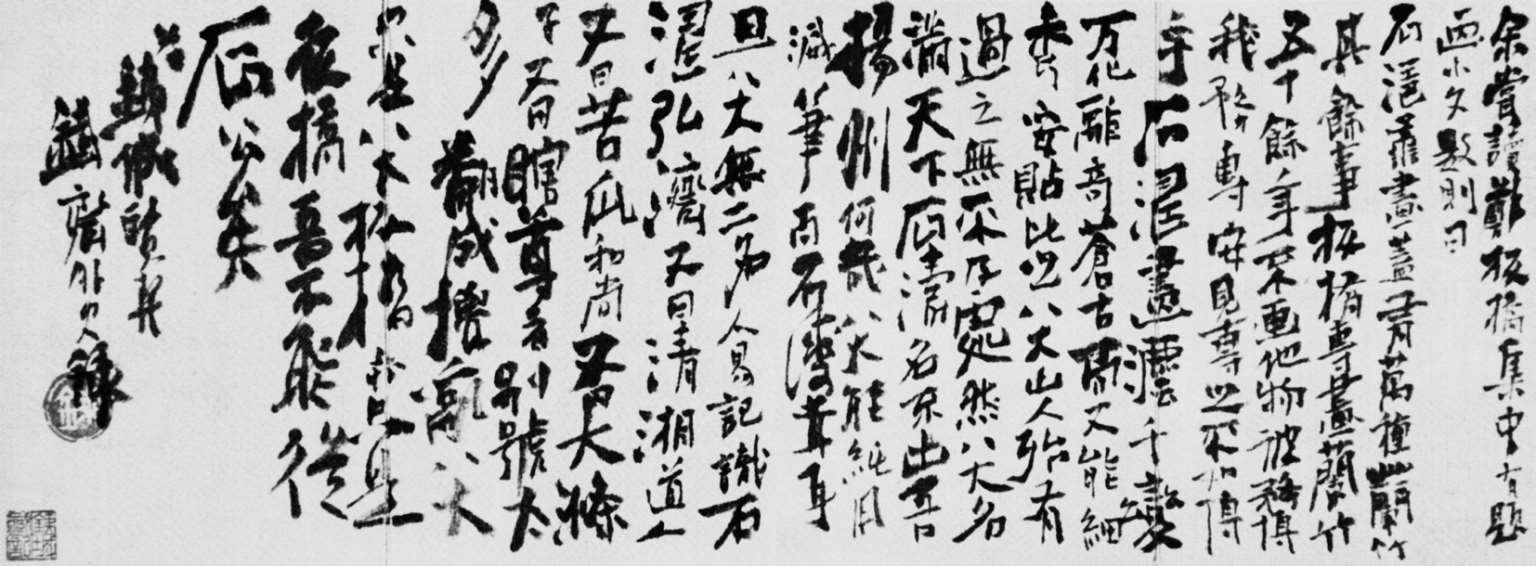 余嘗讀鄭板橋集中有題
画小文數則曰
石濤善畫蓋有萬種蘭竹
其餘事板橋專畫蘭竹
五十餘年不画他物彼務博
我務專安見專之不如博
乎石濤畫灋千變
万化離奇蒼古而又能細
秀妥貼比之八大山人殆有
過之無不及處然八大名
滿天下石濤名不出吾
揚州何哉八大能純用
減筆而石濤微茸耳
且八大無二名人易記識石
濤弘濟又曰清湘道人
又曰苦瓜和尚又曰大滌
子又曰瞎尊者別號太
多翻成攪亂八大
只是八大板橋亦只是
板橋吾不能從
石公矣
鐵齋外史錄